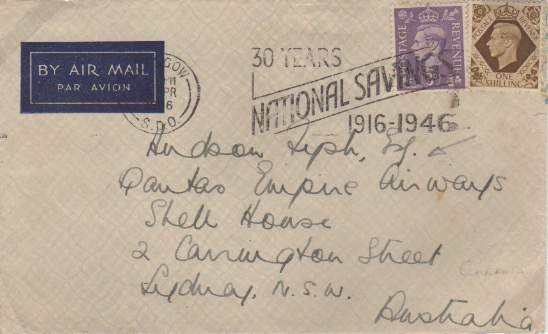 BY AIR MAIL
PAR AVION
GOW
PM
PR
6
S.D.O.
30 YEARS
NATIONAL SAVINGS
1916-1946
POSTAGE REVENUE
POSTAGE REVENUE
ONE
SHILLING
Hudson Fysh, Esq.
Qantas Empire Airways
Shell House
2 Carrington Street
Sydney, N.S.W.
Australia